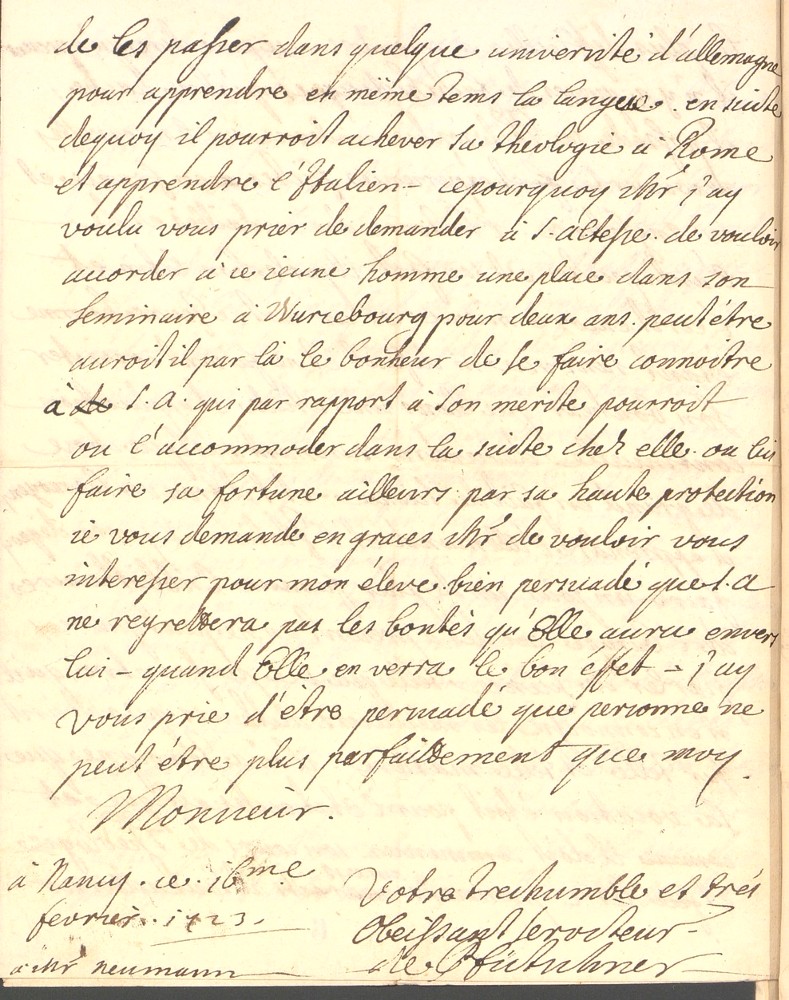 de les passer dans quelque université d'allemagne
pour apprendre en même tems la langue. en suite
dequoy il pourroit achever sa theologie à Rome
et apprendre l'Italien - cepourquoy Mr j'ay
voulu vous prier de demander à S. altesse. de vouloir
accorder à ce ieune homme une place dans son
seminaire à Wurcebourg pour deux ans. peutétre
auroit il par là le bonheur de se faire connoitre
à S. A. qui par rapport à son merite pourroit
ou l'accommoder dans la suite chez elle. ou lui
faire sa fortune ailleurs par sa haute protection
ie vous demande en graces Mr de vouloir vous
interesser pour mon éleve. bien persuadé que S. A
ne regrettera pas les bontés qu'Elle aura envers
lui - quand Elle en verra le bon éffet - j'ay
vous prie d'être persuadé que personne ne
peut étre plus parfaittement que moy.
Monsieur.
à Nancy. ce. 16me
fevrier. 1723.
à Mr neumann
Votre treshumble et trés
Obeissant serviteur
de Pfütschner